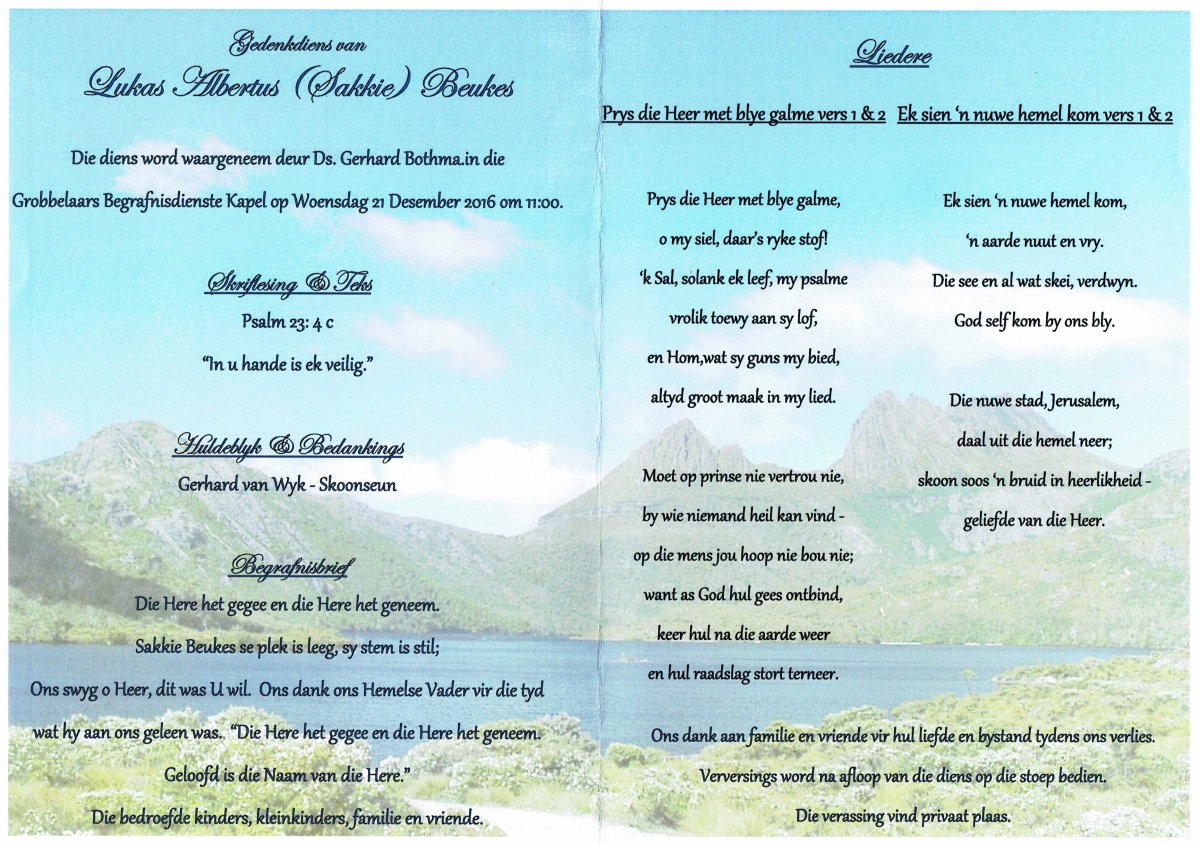 Gedenkdiens van
Lukas Albertus (Sakkie) Beukes
Die diens word waargeneem deur Ds. Gerhard Bothma.in die
Grobbelaars Begrafnisdienste Kapel op Woensdag 21 Desember 2016 om 11:00.
Skriflesing & Teks
Psalm 23: 4 c
“In u hande is ek veilig.”
Huldeblyk & Bedankings
Gerhard van Wyk - Skoonseun
Begrafnisbrief
Die Here het gegee en die Here het geneem.
Sakkie Beukes se plek is leeg, sy stem is stil;
Ons swyg o Heer, dit was U wil.  Ons dank ons Hemelse Vader vir die tyd
wat hy aan ons geleen was.  “Die Here het gegee en die Here het geneem.
Geloofd is die Naam van die Here.”
Die bedroefde kinders, kleinkinders, familie en vriende.
Liedere
Prys die Heer met blye galme vers 1 & 2
Prys die Heer met blye galme,
o my siel, daar’s ryke stof!
‘k Sal, solank ek leef, my psalme
vrolik toewy aan sy lof,
en Hom,wat sy guns my bied,
altyd groot maak in my lied.
Moet op prinse nie vertrou nie,
by wie niemand heil kan vind -
op die mens jou hoop nie bou nie;
want as God hul gees ontbind,
keer hul na die aarde weer
en hul raadslag stort terneer.
Ek sien ‘n nuwe hemel kom vers 1 & 2
Ek sien ‘n nuwe hemel kom,
‘n aarde nuut en vry.
Die see en al wat skei, verdwyn.
God self kom by ons bly.
Die nuwe stad, Jerusalem,
daal uit die hemel neer;
skoon soos ‘n bruid in heerlikheid -
geliefde van die Heer.
Ons dank aan familie en vriende vir hul liefde en bystand tydens ons verlies.
Verversings word na afloop van die diens op die stoep bedien.
Die verassing vind privaat plaas.